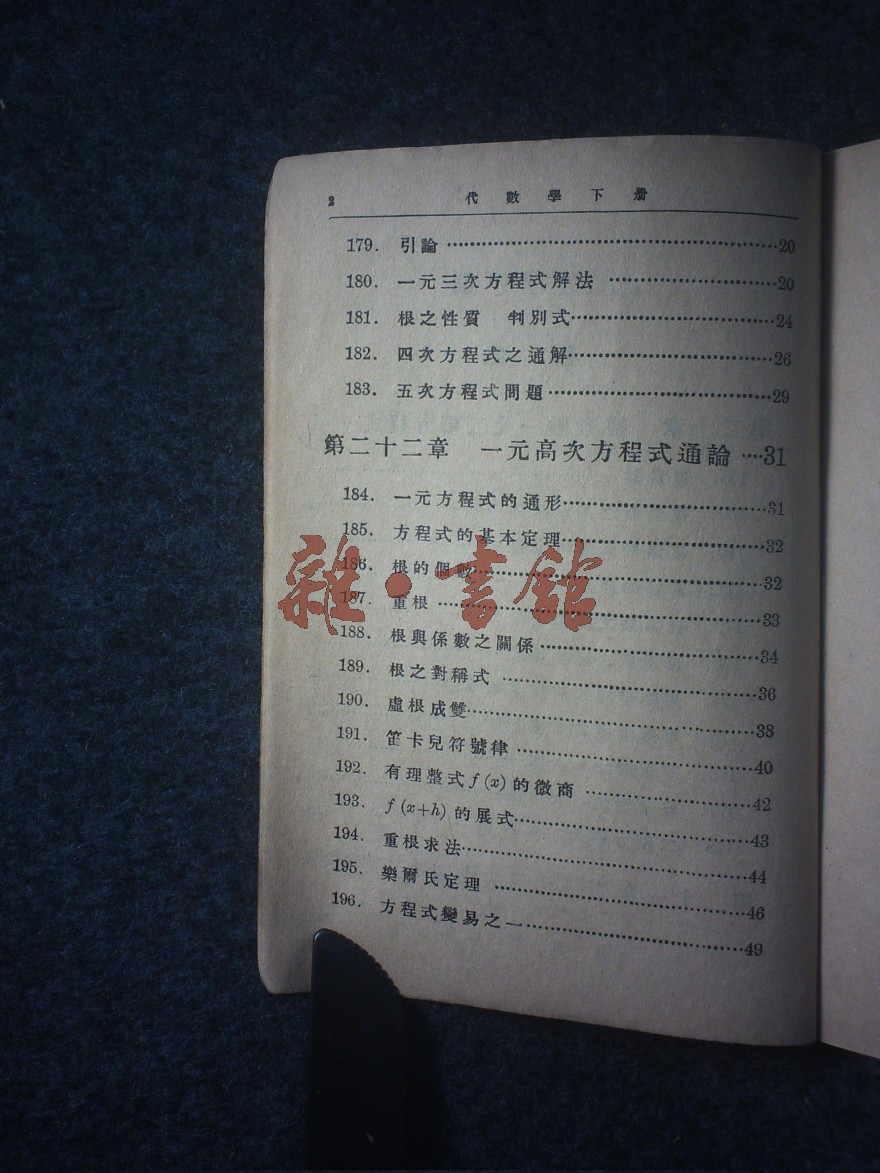 2 代數學下册
179. 引論 ………20
180. 一元三次方程式解法 ………20
181. 根之性質 判別式………24
182. 四次方程式之通解………26
183. 五次方程式問題………29
第二十二章 一元高次方程式通論····31
184. 一元方程式的通形………31
185. 方程式的基本定理………32
186. 根的個數………32
187. 重根………33
188. 根與係數之關係………34
189. 根之對稱式………36
190. 虛根成雙………38
191. 笛卡兒符號律………40
192. 有理整式 f(x) 的微商………42
193. f(x+h) 的展式………43
194. 重根求法………44
195. 樂爾氏定理………46
196. 方程式變易之一………49
雜·書館